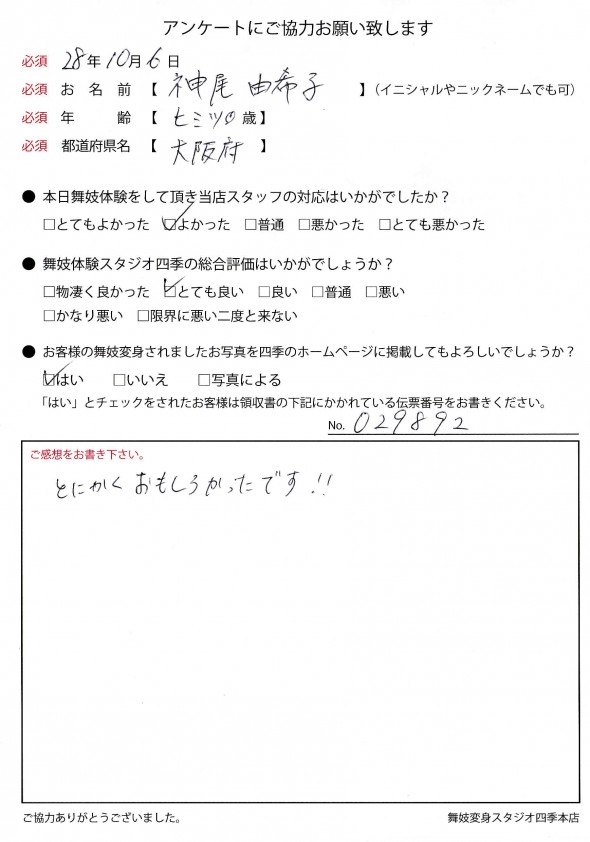 アンケートにご協力お願い致します
必須 28年10月6日
必須 お名前【 神尾 由希子 】(イニシャルやニックネームでも可)
必須 年齢【 ヒミツ 歳】
必須 都道府県名【 大阪府 】
● 本日舞妓体験をして頂き当店スタッフの対応はいかがでしたか?
□とてもよかった ☑よかった □普通 □悪かった □とても悪かった
● 舞妓体験スタジオ四季の総合評価はいかがでしょうか?
□物凄く良かった ☑とても良い □良い □普通 □悪い
□かなり悪い □限界に悪い二度と来ない
● お客様の舞妓変身されましたお写真を四季のホームページに掲載してもよろしいでしょうか?
☑はい □いいえ □写真による
「はい」とチェックをされたお客様は領収書の下記にかかれている伝票番号をお書きください。
No. 029892
ご感想をお書き下さい。
とにかくおもしろかったです!!
ご協力ありがとうございました。 舞妓変身スタジオ四季本店